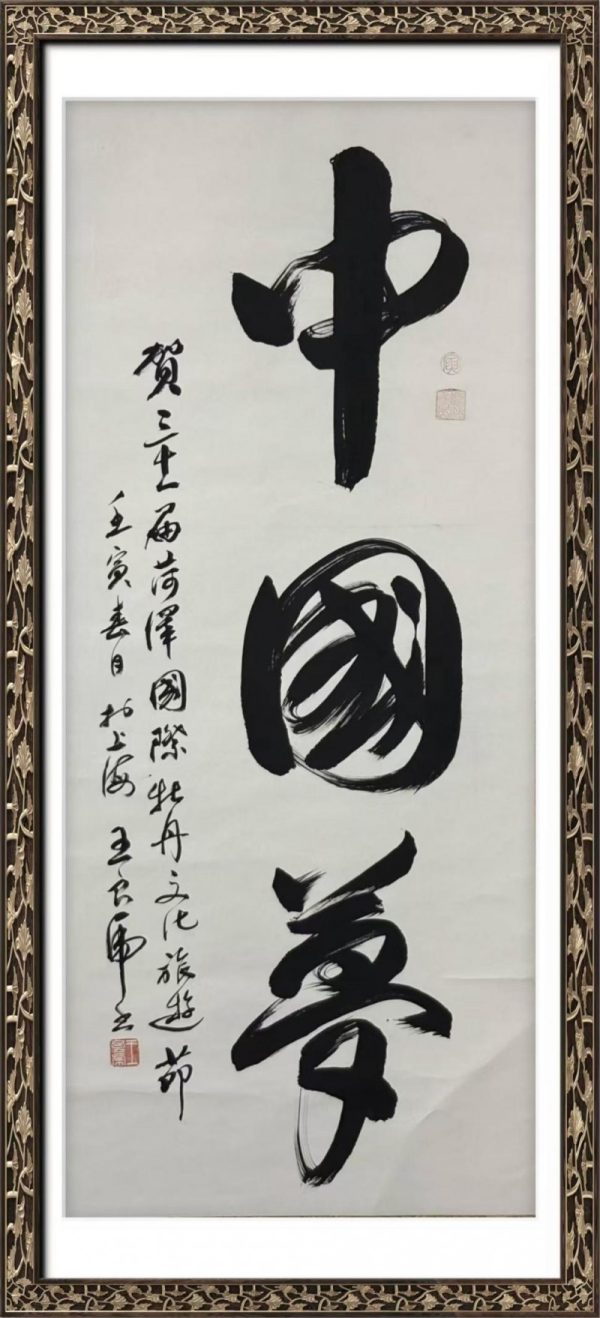 中國夢
賀三十一届菏澤國際牡丹文化旅遊節
壬寅春日於上海王良虎書